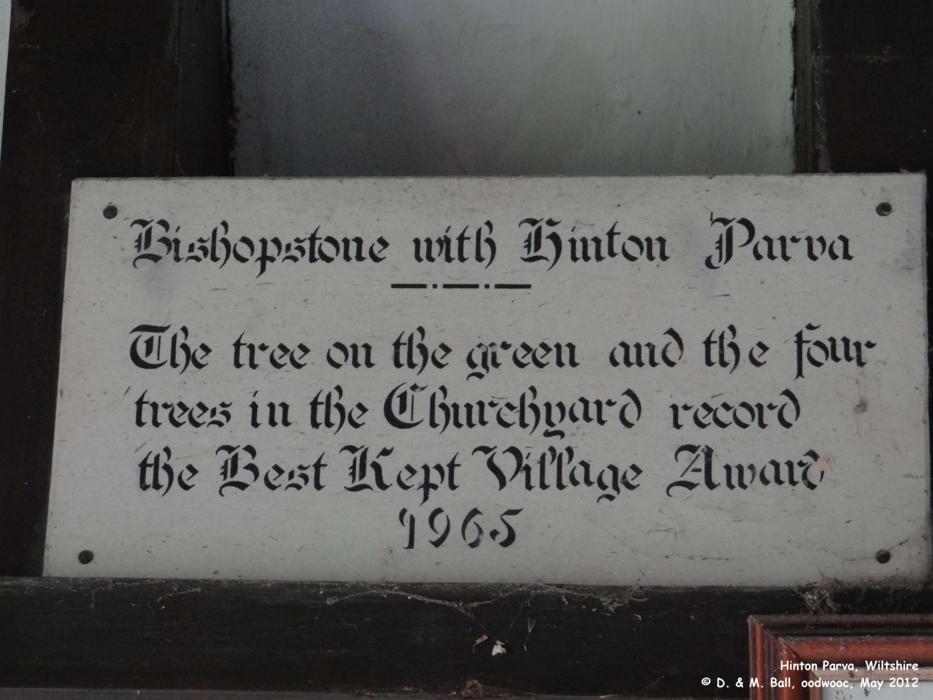 Bishopstone with Hinton Parva
The tree on the green and the four
trees in the Churchyard record
the Best Kept Village Award
1965
Hinton Parva, Wiltshire
© D. & M. Ball, oodwooc, May 2012